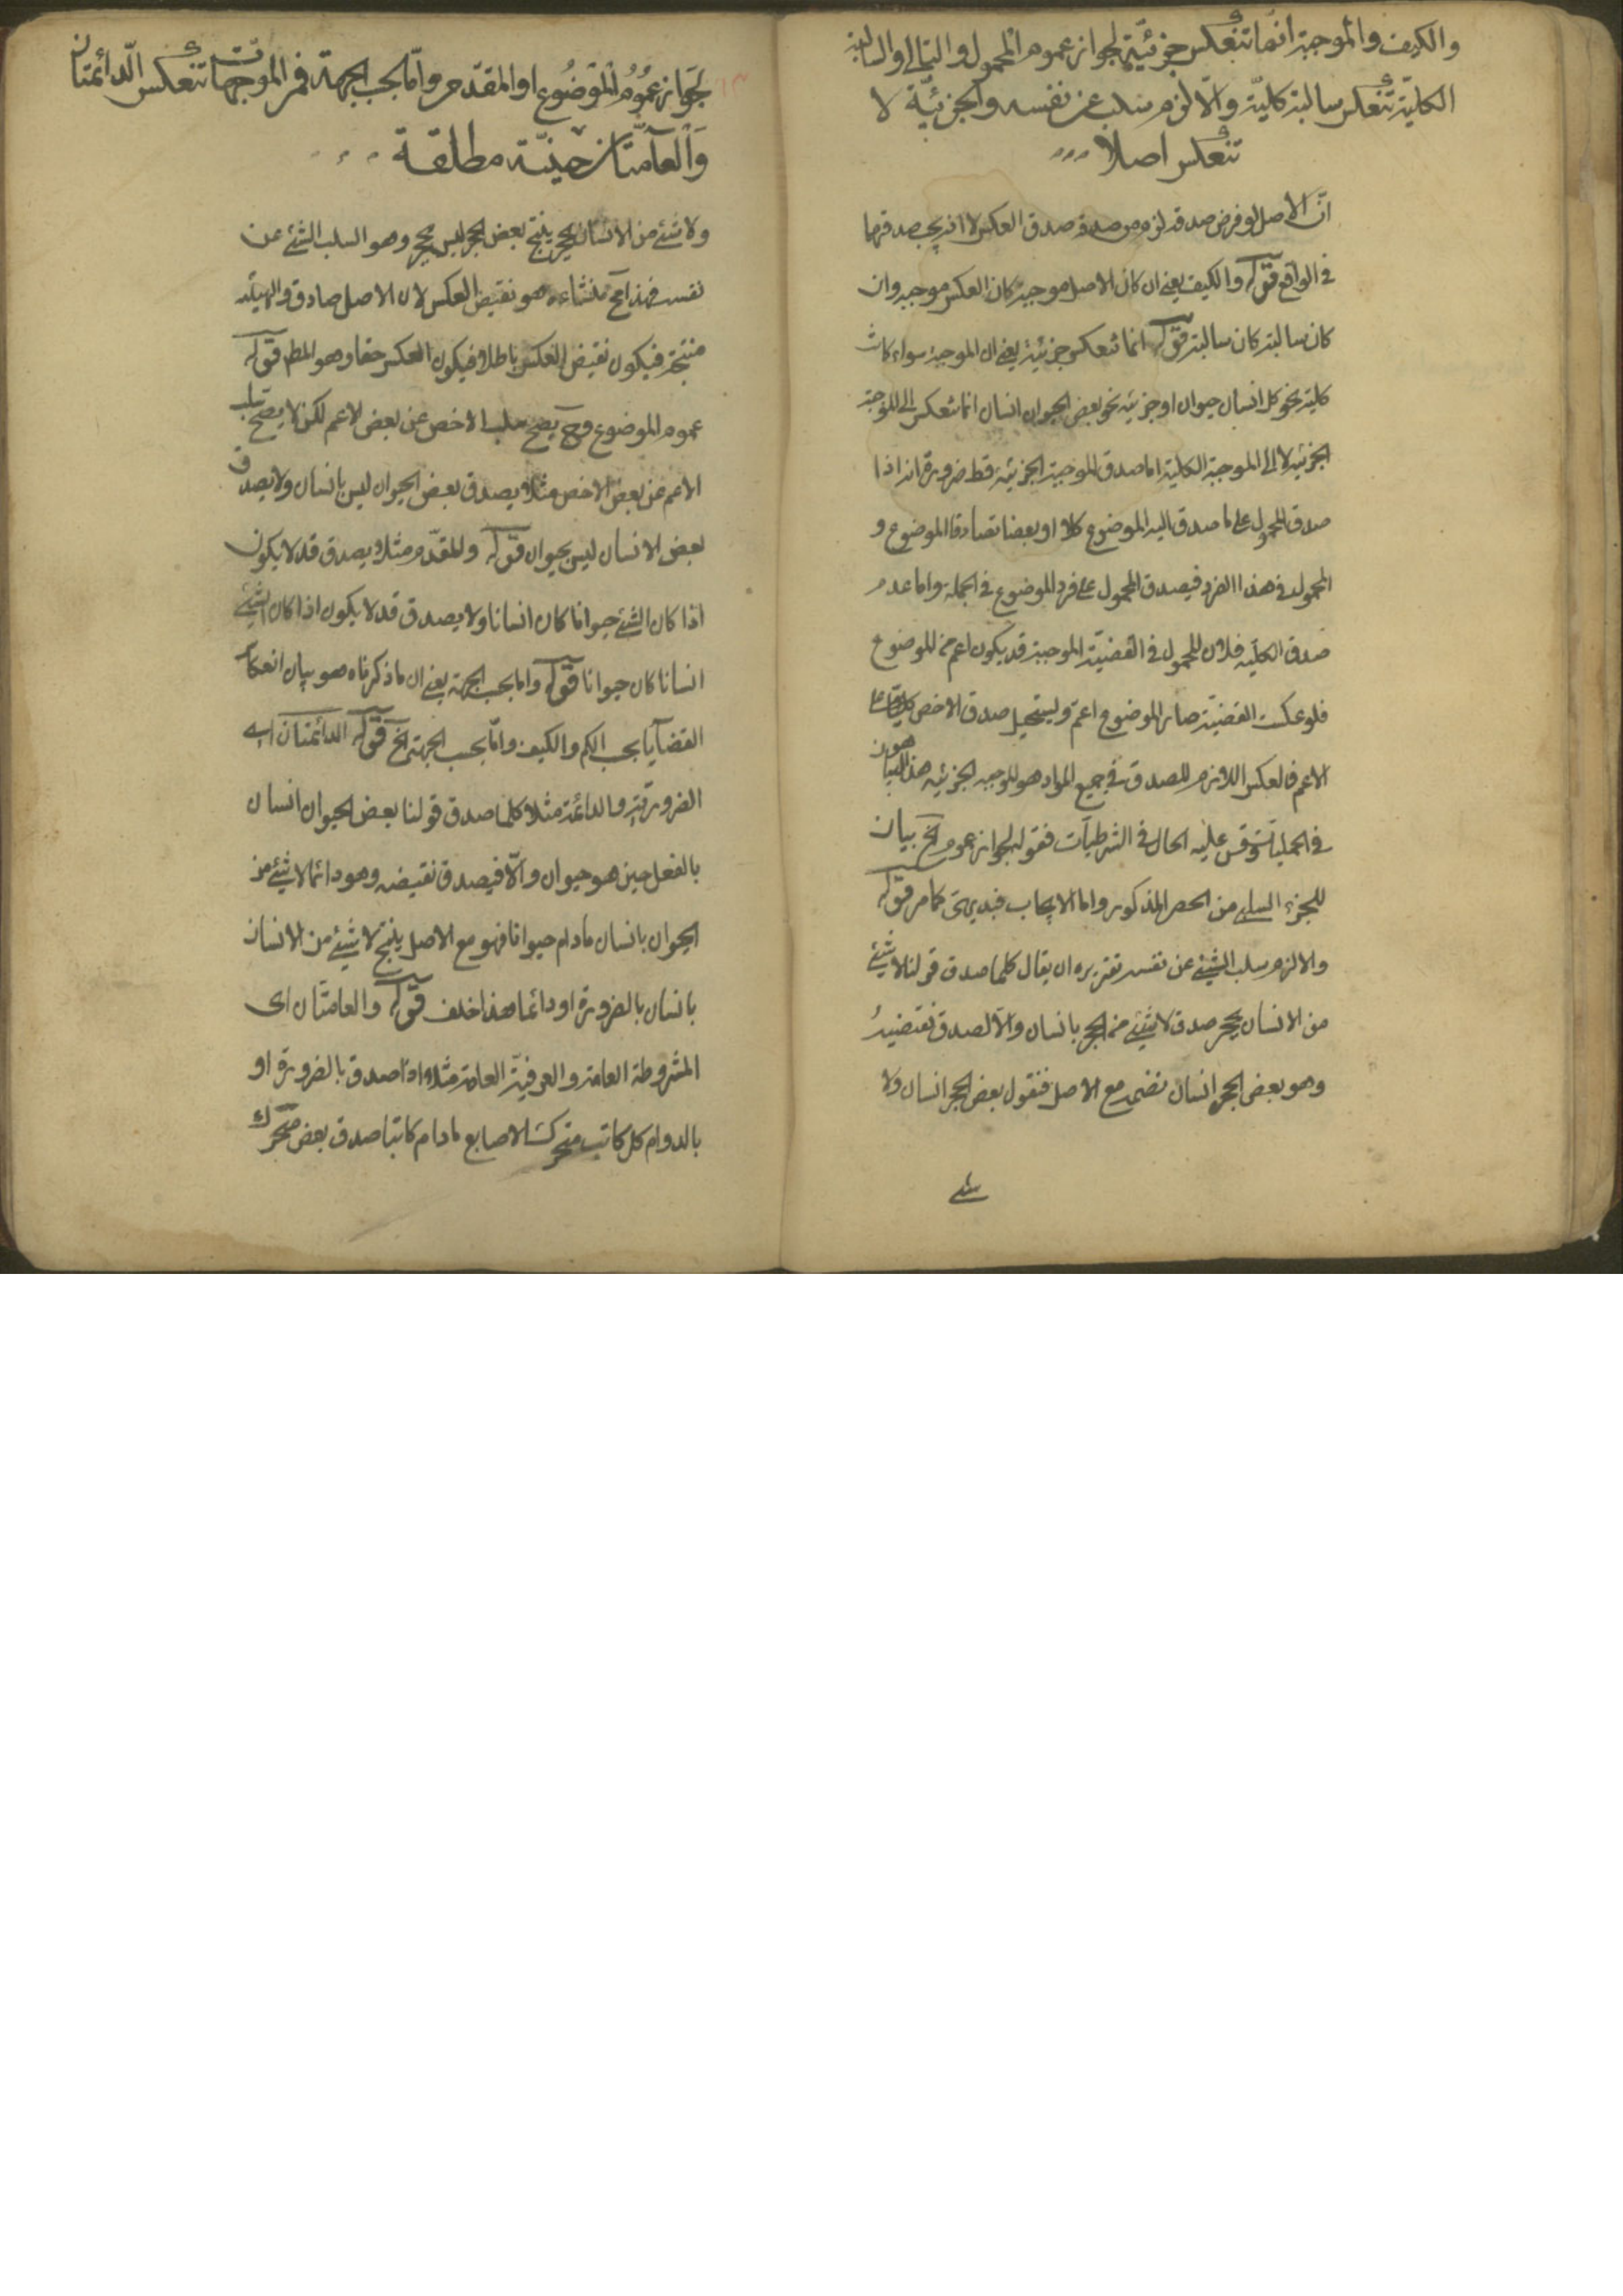 والكيف والموجبة انما تنعكس جزئية لجواز عموم المحمول والتالي والسالبة
الكلية تنعكس سالبة كلية والا لزم سلب عن نفسه والجزئية لا
تنعكس اصلا
ان الاصل لو فرض صدقه لزم من صدقه صدق العكس لا انه يجب صدقهما
في الواقع قوله والكيف يعني ان كان الاصل موجبة كان العكس موجبه وان
كان سالبة كان سالبة قوله انما تنعكس جزئية يعني ان الموجبة سواء كانت
كلية نحو كل انسان حيوان او جزئية نحو بعض الحيوان انسان انما تنعكس الى الموجبة
الجزئية لا الى الموجبة الكلية اما صدق الموجبة الجزئية فظ ضرورة انه اذا
صدق المحمول على ما صدق اليه الموضوع كلا او بعضا تصادقا الموضوع و
المحمول في هذا الفرد فيصدق المحمول على فرد الموضوع في الجملة واما عدم
صدق الكلية فلان المحمول في القضية الموجبة قد يكون اعم من الموضوع
فلو عكست القضية صار الموضوع اعم ويستحيل صدق الاخص كليا على
الاعم فالعكس اللازم للصدق في جميع المواد هو الموجبه الجزئيه هذا هو البيان
في الحمليات وقس عليه الحال في الشرطيات فقوله لجواز عموم الخ بيان
للجزء السلبي من الحصر المذكور واما الايجاب فبديهي كما مر قوله
والا لزم سلب الشئ عن نفسه تقريره ان يقال كلما صدق قولنا لا شئ
من الانسان بحجر صدق لا شئ من الحجر بانسان والا لصدق نقيضه
وهو بعض الحجر انسان نضم مع الاصل فنقول بعض الحجر انسان ولا
شئ
لجواز عموم الموضوع او المقدم واما بحسب الجهة فمن الموجهات تنعكس الدائمتان
والعامتان حينية مطلقة
ولا شئ من الانسان بحجر ينتج بعض الحجر ليس بحجر وهو السلب الشئ عن
نفسه فهذا مح منشاءه هو نقيض العكس لان الاصل صادق والهيئة
منتجة فيكون نقيض العكس باطلا فيكون العكس حقا وهو المط قوله
عموم الموضوع وح يصح سلب الاخص عن بعض الاعم لكن لا يصح سلب
الاعم عن بعض الاخص مثلا يصدق بعض الحيوان ليس بانسان ولا يصدق
بعض الانسان ليس بحيوان قوله والمقدم مثلا يصدق قد لا يكون
اذا كان الشئ حيوانا كان انسانا ولا يصدق قد لا يكون اذا كان الشئ
انسانا كان حيوانا قوله واما بحسب الجهة يعني ان ما ذكرناه هو بيان انعكاس
القضايا بحسب الكم والكيف واما بحسب الجهة الخ قوله الدائمتان اي
الضرورية والدائمة مثلا كلما صدق قولنا بعض الحيوان انسان
بالفعل حين هو حيوان والا فيصدق نقيضه وهو دائما لا شئ من
الحيوان بانسان مادام حيوانا فهو مع الاصل ينتج لا شئ من الانسان
بانسان بالضرورة او دائما هذا خلف قوله والعامتان اي
المشروطة العامة والعرفية العامة مثلا اذا صدق بالضرورة او
بالدوام كل كاتب متحرك الاصابع مادام كاتبا صدق بعض متحرك